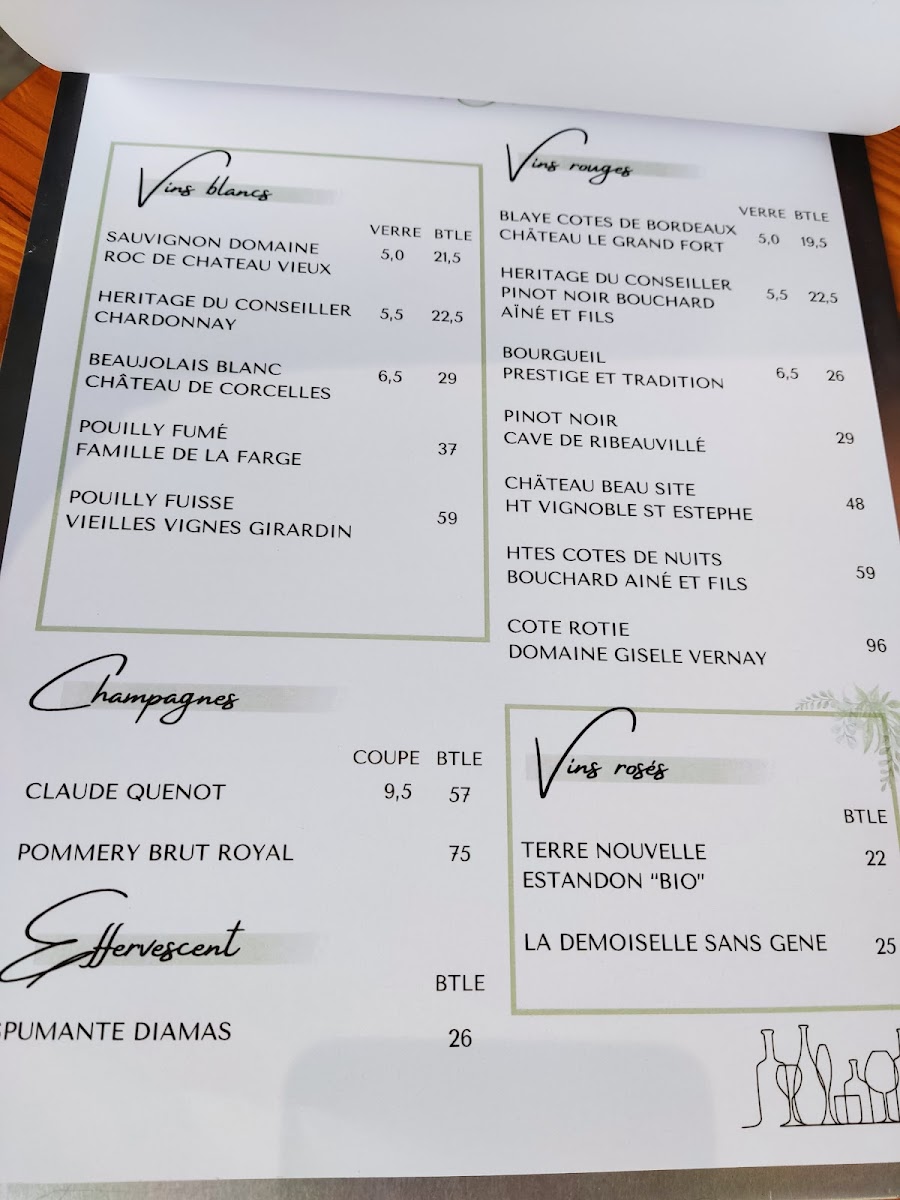 Vins blancs
VERRE BTLE
SAUVIGNON DOMAINE
ROC DE CHATEAU VIEUX 5,0 21,5
HERITAGE DU CONSEILLER
CHARDONNAY 5,5 22,5
BEAUJOLAIS BLANC
CHÂTEAU DE CORCELLES 6,5 29
POUILLY FUMÉ
FAMILLE DE LA FARGE 37
POUILLY FUISSE
VIEILLES VIGNES GIRARDIN 59
Champagnes
COUPE BTLE
CLAUDE QUENOT 9,5 57
POMMERY BRUT ROYAL 75
Effervescent
BTLE
SPUMANTE DIAMAS 26
Vins rouges
VERRE BTLE
BLAYE COTES DE BORDEAUX
CHÂTEAU LE GRAND FORT 5,0 19,5
HERITAGE DU CONSEILLER
PINOT NOIR BOUCHARD 5,5 22,5
AÏNÉ ET FILS
BOURGUEIL
PRESTIGE ET TRADITION 6,5 26
PINOT NOIR
CAVE DE RIBEAUVILLÉ 29
CHÄTEAU BEAU SITE
HT VIGNOBLE ST ESTEPHE 48
HTES COTES DE NUITS
BOUCHARD AINÉ ET FILS 59
COTE ROTIE
DOMAINE GISELE VERNAY 96
Vins rosés
BTLE
TERRE NOUVELLE 22
ESTANDON "BIO"
LA DEMOISELLE SANS GENE 25